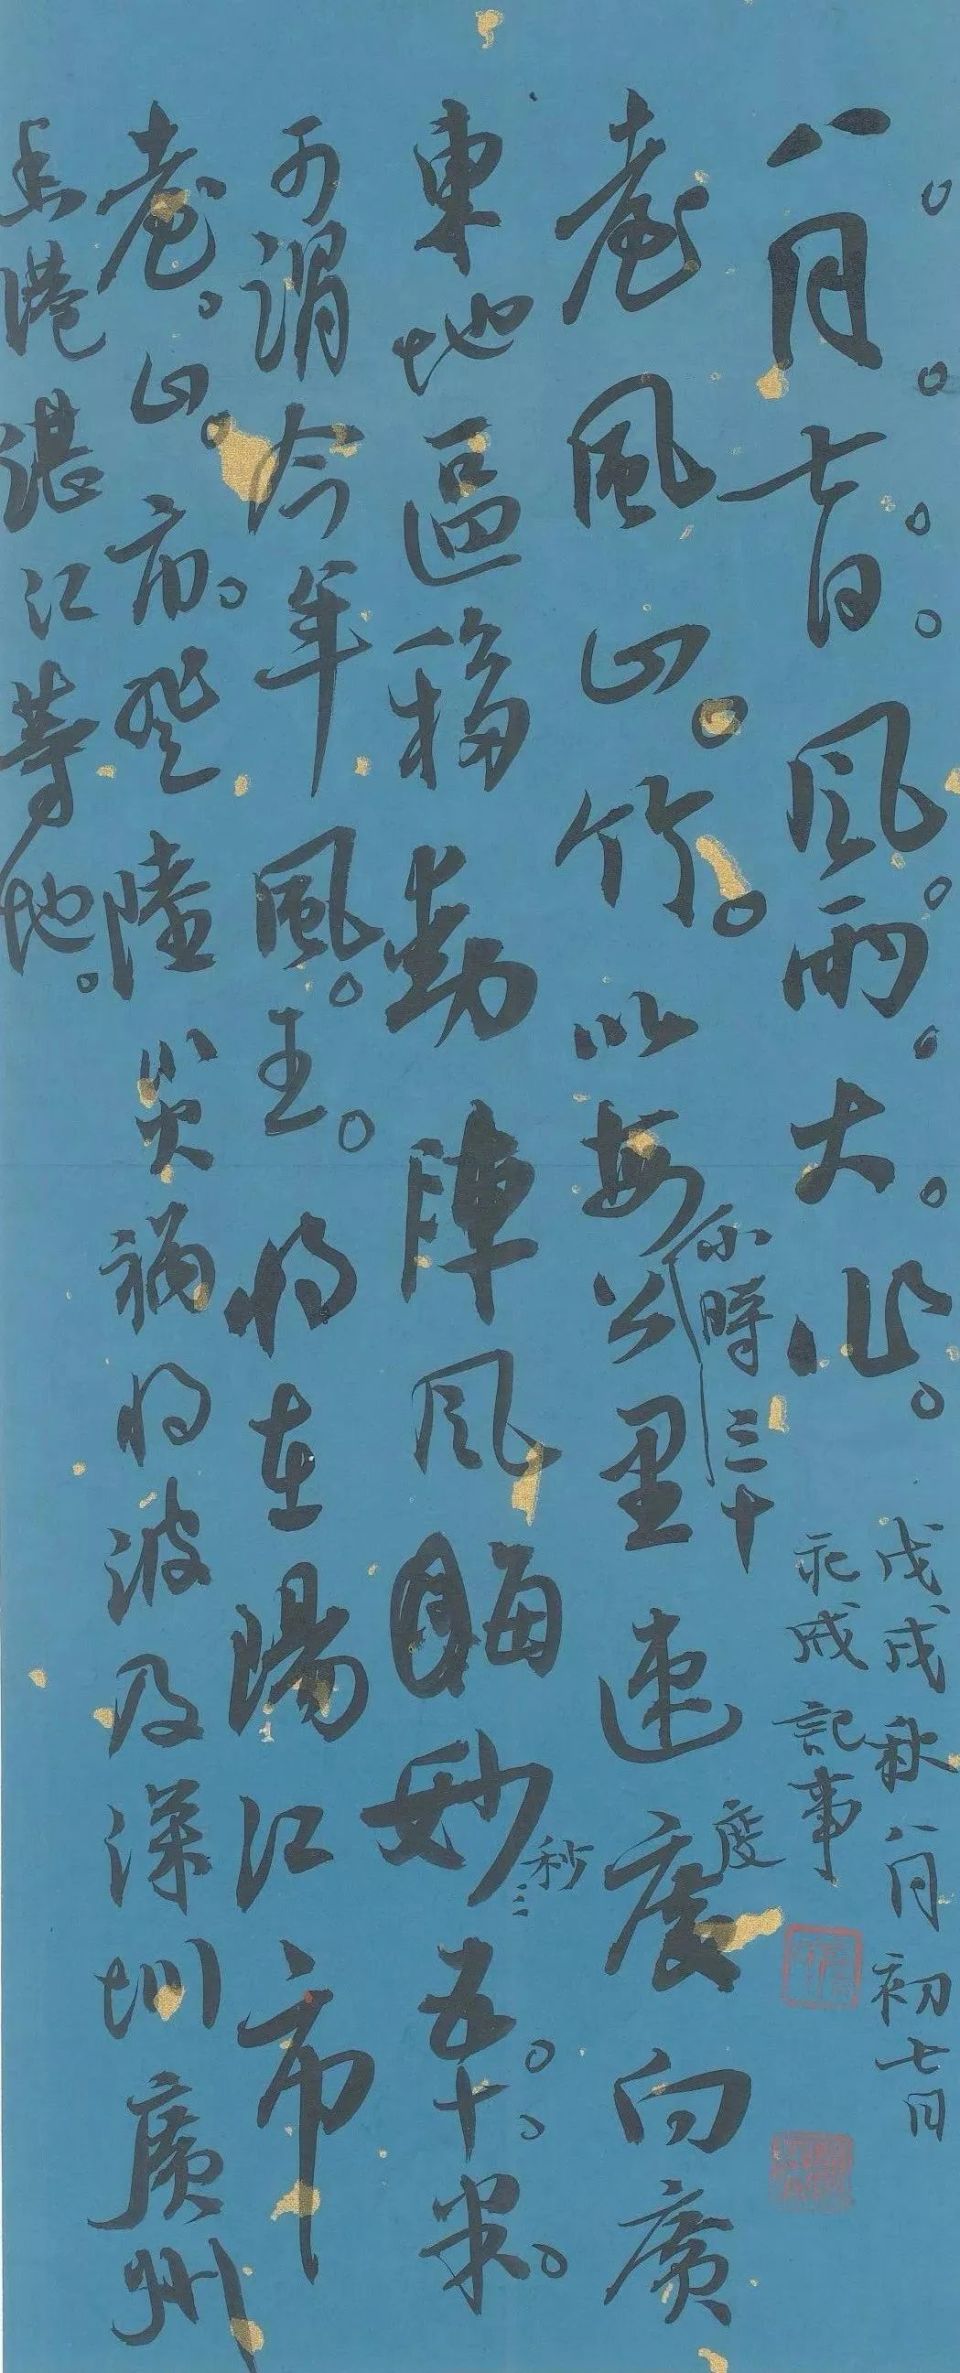 八月。七日。風。雨。大。作。
臺風山。竹。以每小時三十公里速度向廣
東地區移動陣風每秒三五。十。米。
可謂今年風。王。將在陽江市
臺。山。市。登陸災禍將波及深圳廣州
香港湛江等地。
戊戌秋八月初七日
記事